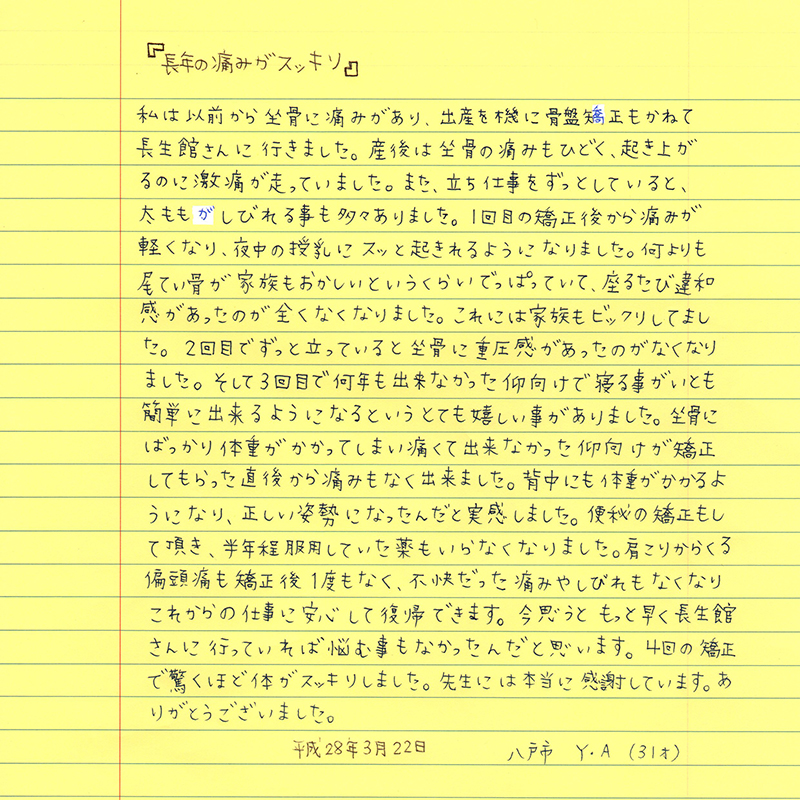 『長年の痛みがスッキリ』
私は以前から坐骨に痛みがあり、出産を機に骨盤矯正もかねて
長生館さんに行きました。産後は坐骨の痛みもひどく、起き上が
るのに激痛が走っていました。また、立ち仕事をずっとしていると、
太ももがしびれる事も多々ありました。1回目の矯正後から痛みが
軽くなり、夜中の授乳にスッと起きれるようになりました。何よりも
尾てい骨が家族もおかしいというくらいでっぱっていて、座るたび違和
感があったのが全くなくなりました。これには家族もビックリしてまし
た。2回目でずっと立っていると坐骨に重圧感があったのがなくなり
ました。そして3回目で何年も出来なかった仰向けで寝る事がいとも
簡単に出来るようになるというとても嬉しい事がありました。坐骨に
ばっかり体重がかかってしまい痛くて出来なかった仰向けが矯正
してもらった直後から痛みもなく出来ました。背中にも体重がかかるよ
うになり、正しい姿勢になったんだと実感しました。便秘の矯正もし
て頂き、半年程服用していた薬もいらなくなりました。肩こりからくる
偏頭痛も矯正後1度もなく、不快だった痛みやしびれもなくなり
これからの仕事に安心して復帰できます。今思うともっと早く長生館
さんに行っていれば悩む事もなかったんだと思います。4回の矯正
で驚くほど体がスッキリしました。先生には本当に感謝しています。あ
りがとうございました。
平成28年3月22日 八戸市 Y・A (31才)